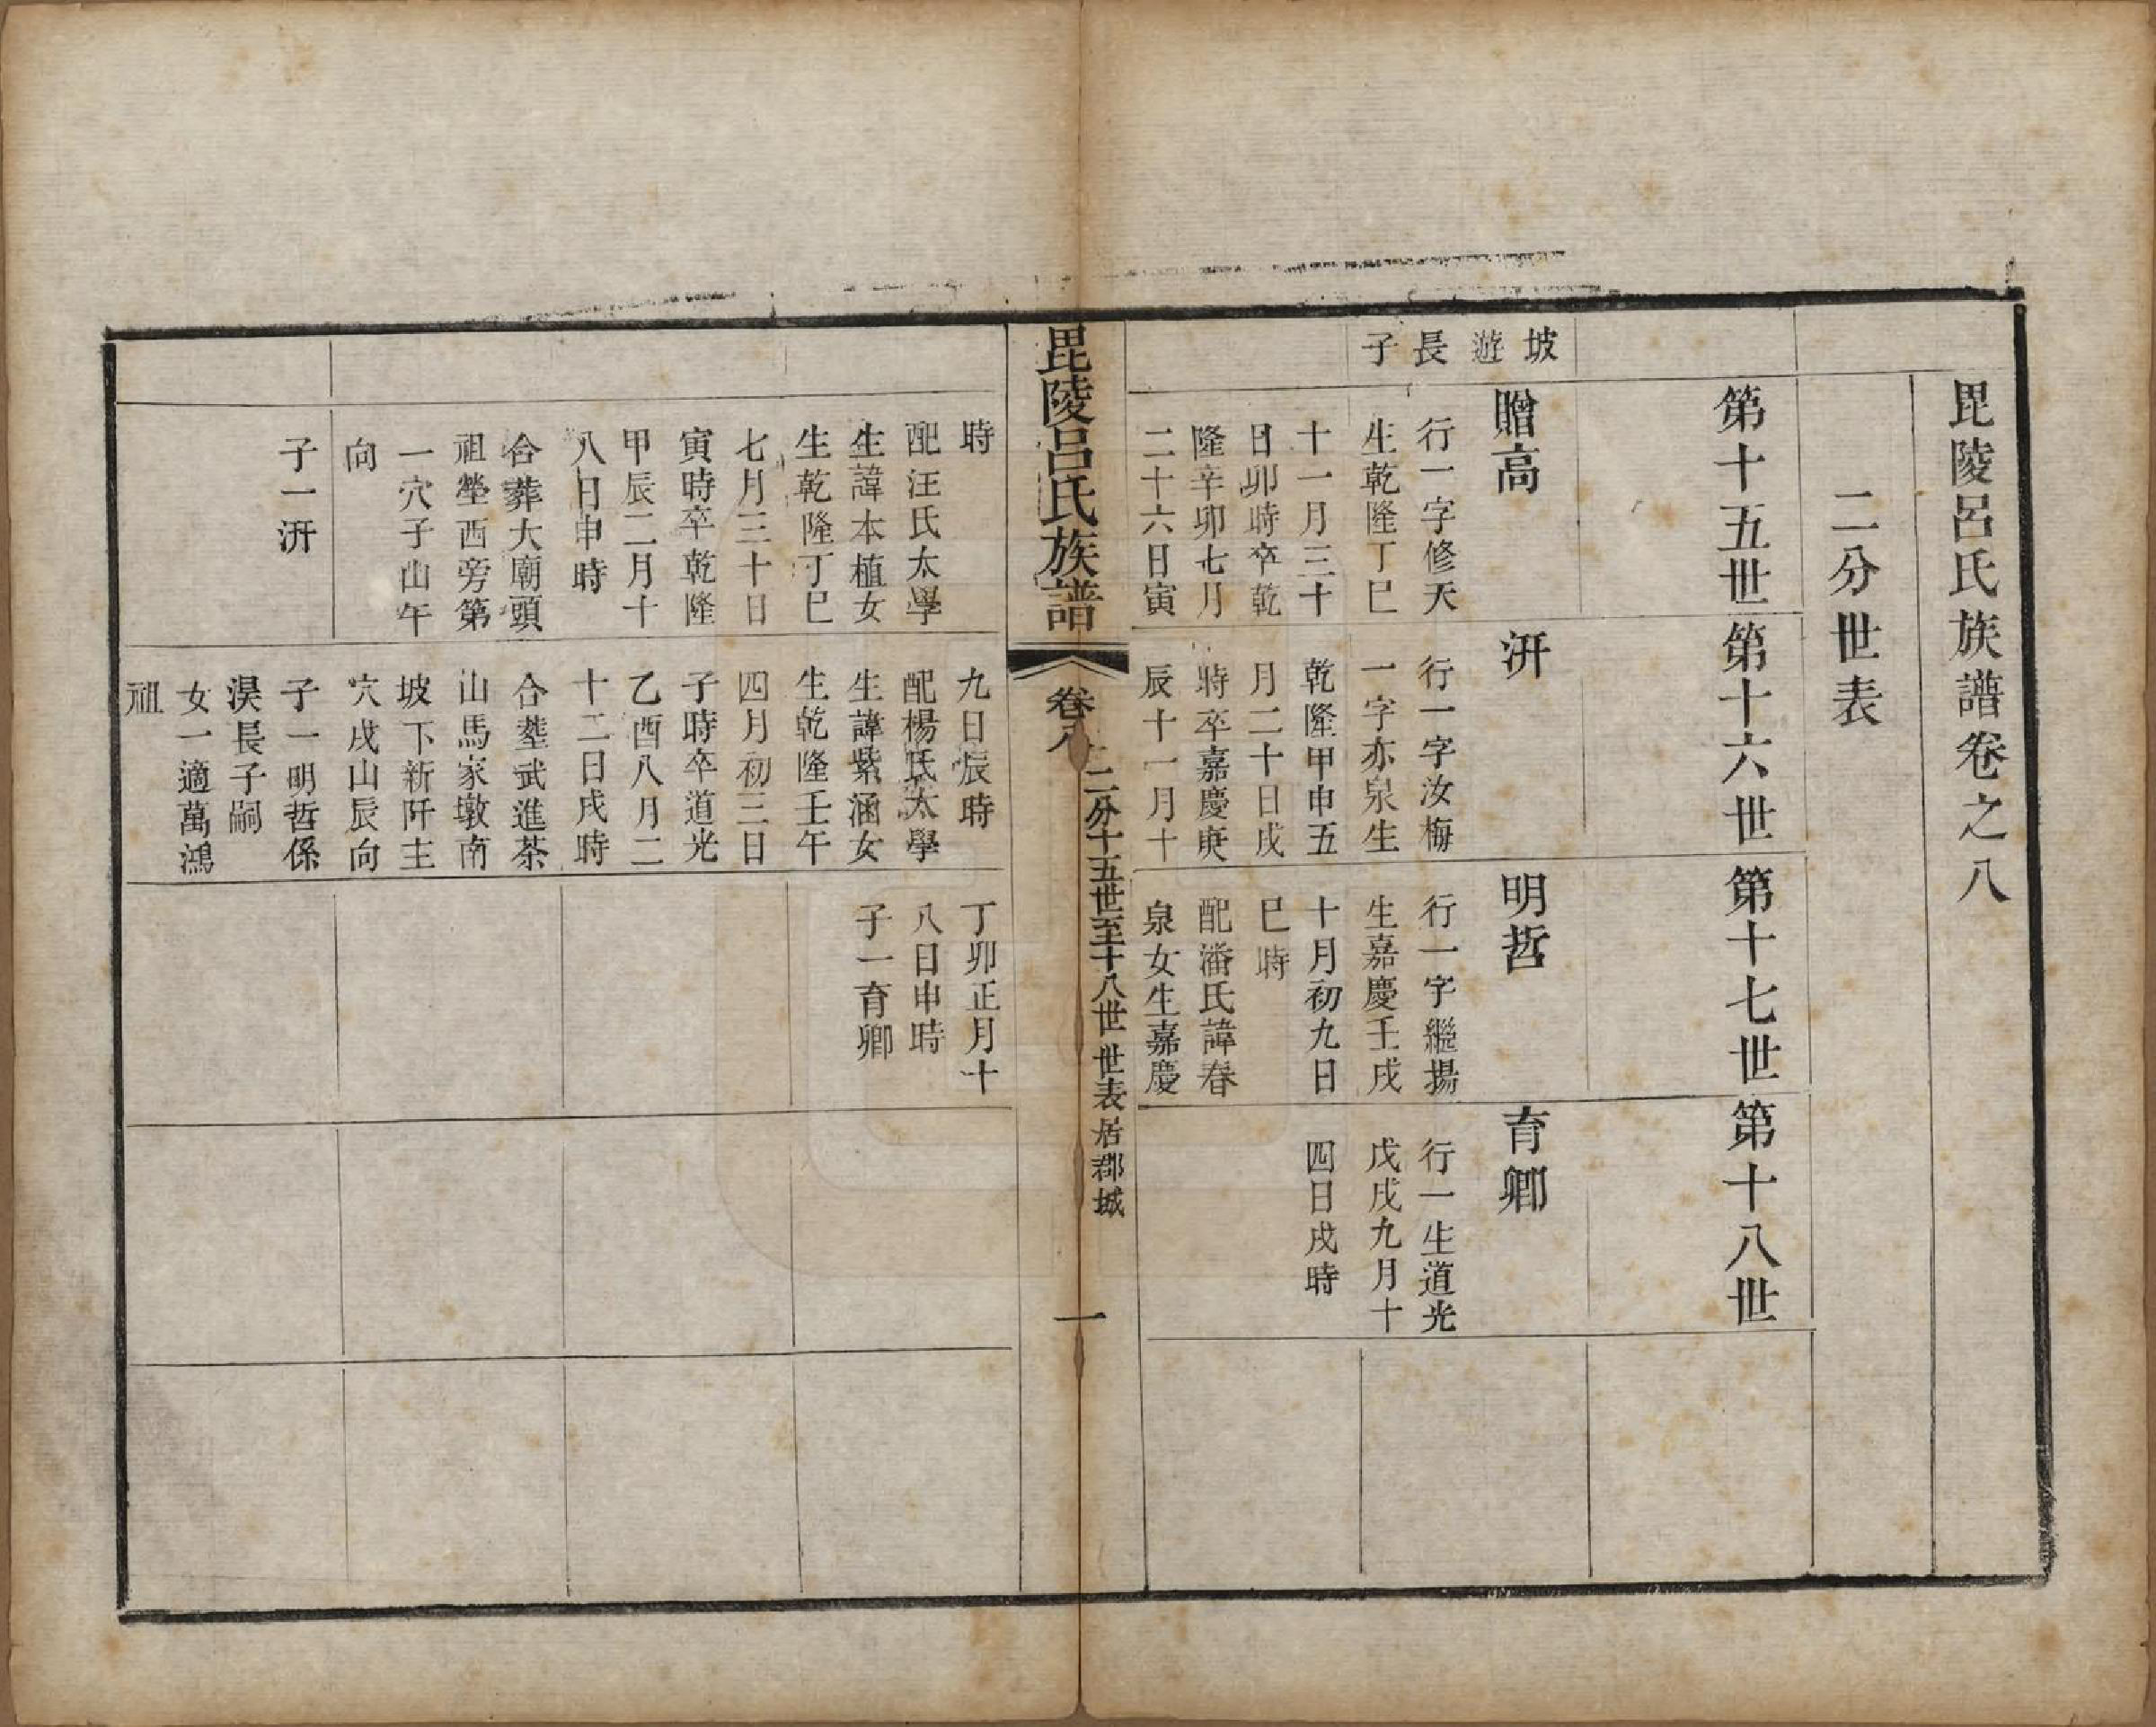 毘陵呂氏族譜卷之八
二分世表
第十五世
第十六世
第十七世
第十八世
坡遊長子
贈高
行一字修天
生乾隆丁巳
十一月三十
日卯時卒乾
隆辛卯七月
二十六日寅
汧
行一字汝梅
一字亦泉生
乾隆甲申五
月二十日戌
時卒嘉慶庚
辰十一月十
明哲
行一字繼揚
生嘉慶壬戌
十月初九日
巳時
配潘氏諱春
泉女生嘉慶
育卿
行一生道光
戊戌九月十
四日戌時
毘陵呂氏族譜
卷八
二分十五世至十八世
世表
居郡城
一
時
配汪氏太學
生諱本植女
生乾隆丁巳
七月三十日
寅時卒乾隆
甲辰二月十
八日申時
合葬大廟頭
祖塋西旁第
一穴子山午
向
子一汧
九日辰時
配楊氏太學
生諱紫涵女
生乾隆壬午
四月初三日
子時卒道光
乙酉八月二
十二日戌時
合塟武進茶
山馬家墩南
坡下新阡主
穴戌山辰向
子一明哲係
淏長子嗣
女一適萬鴻
祖
丁卯正月十
八日申時
子一育卿